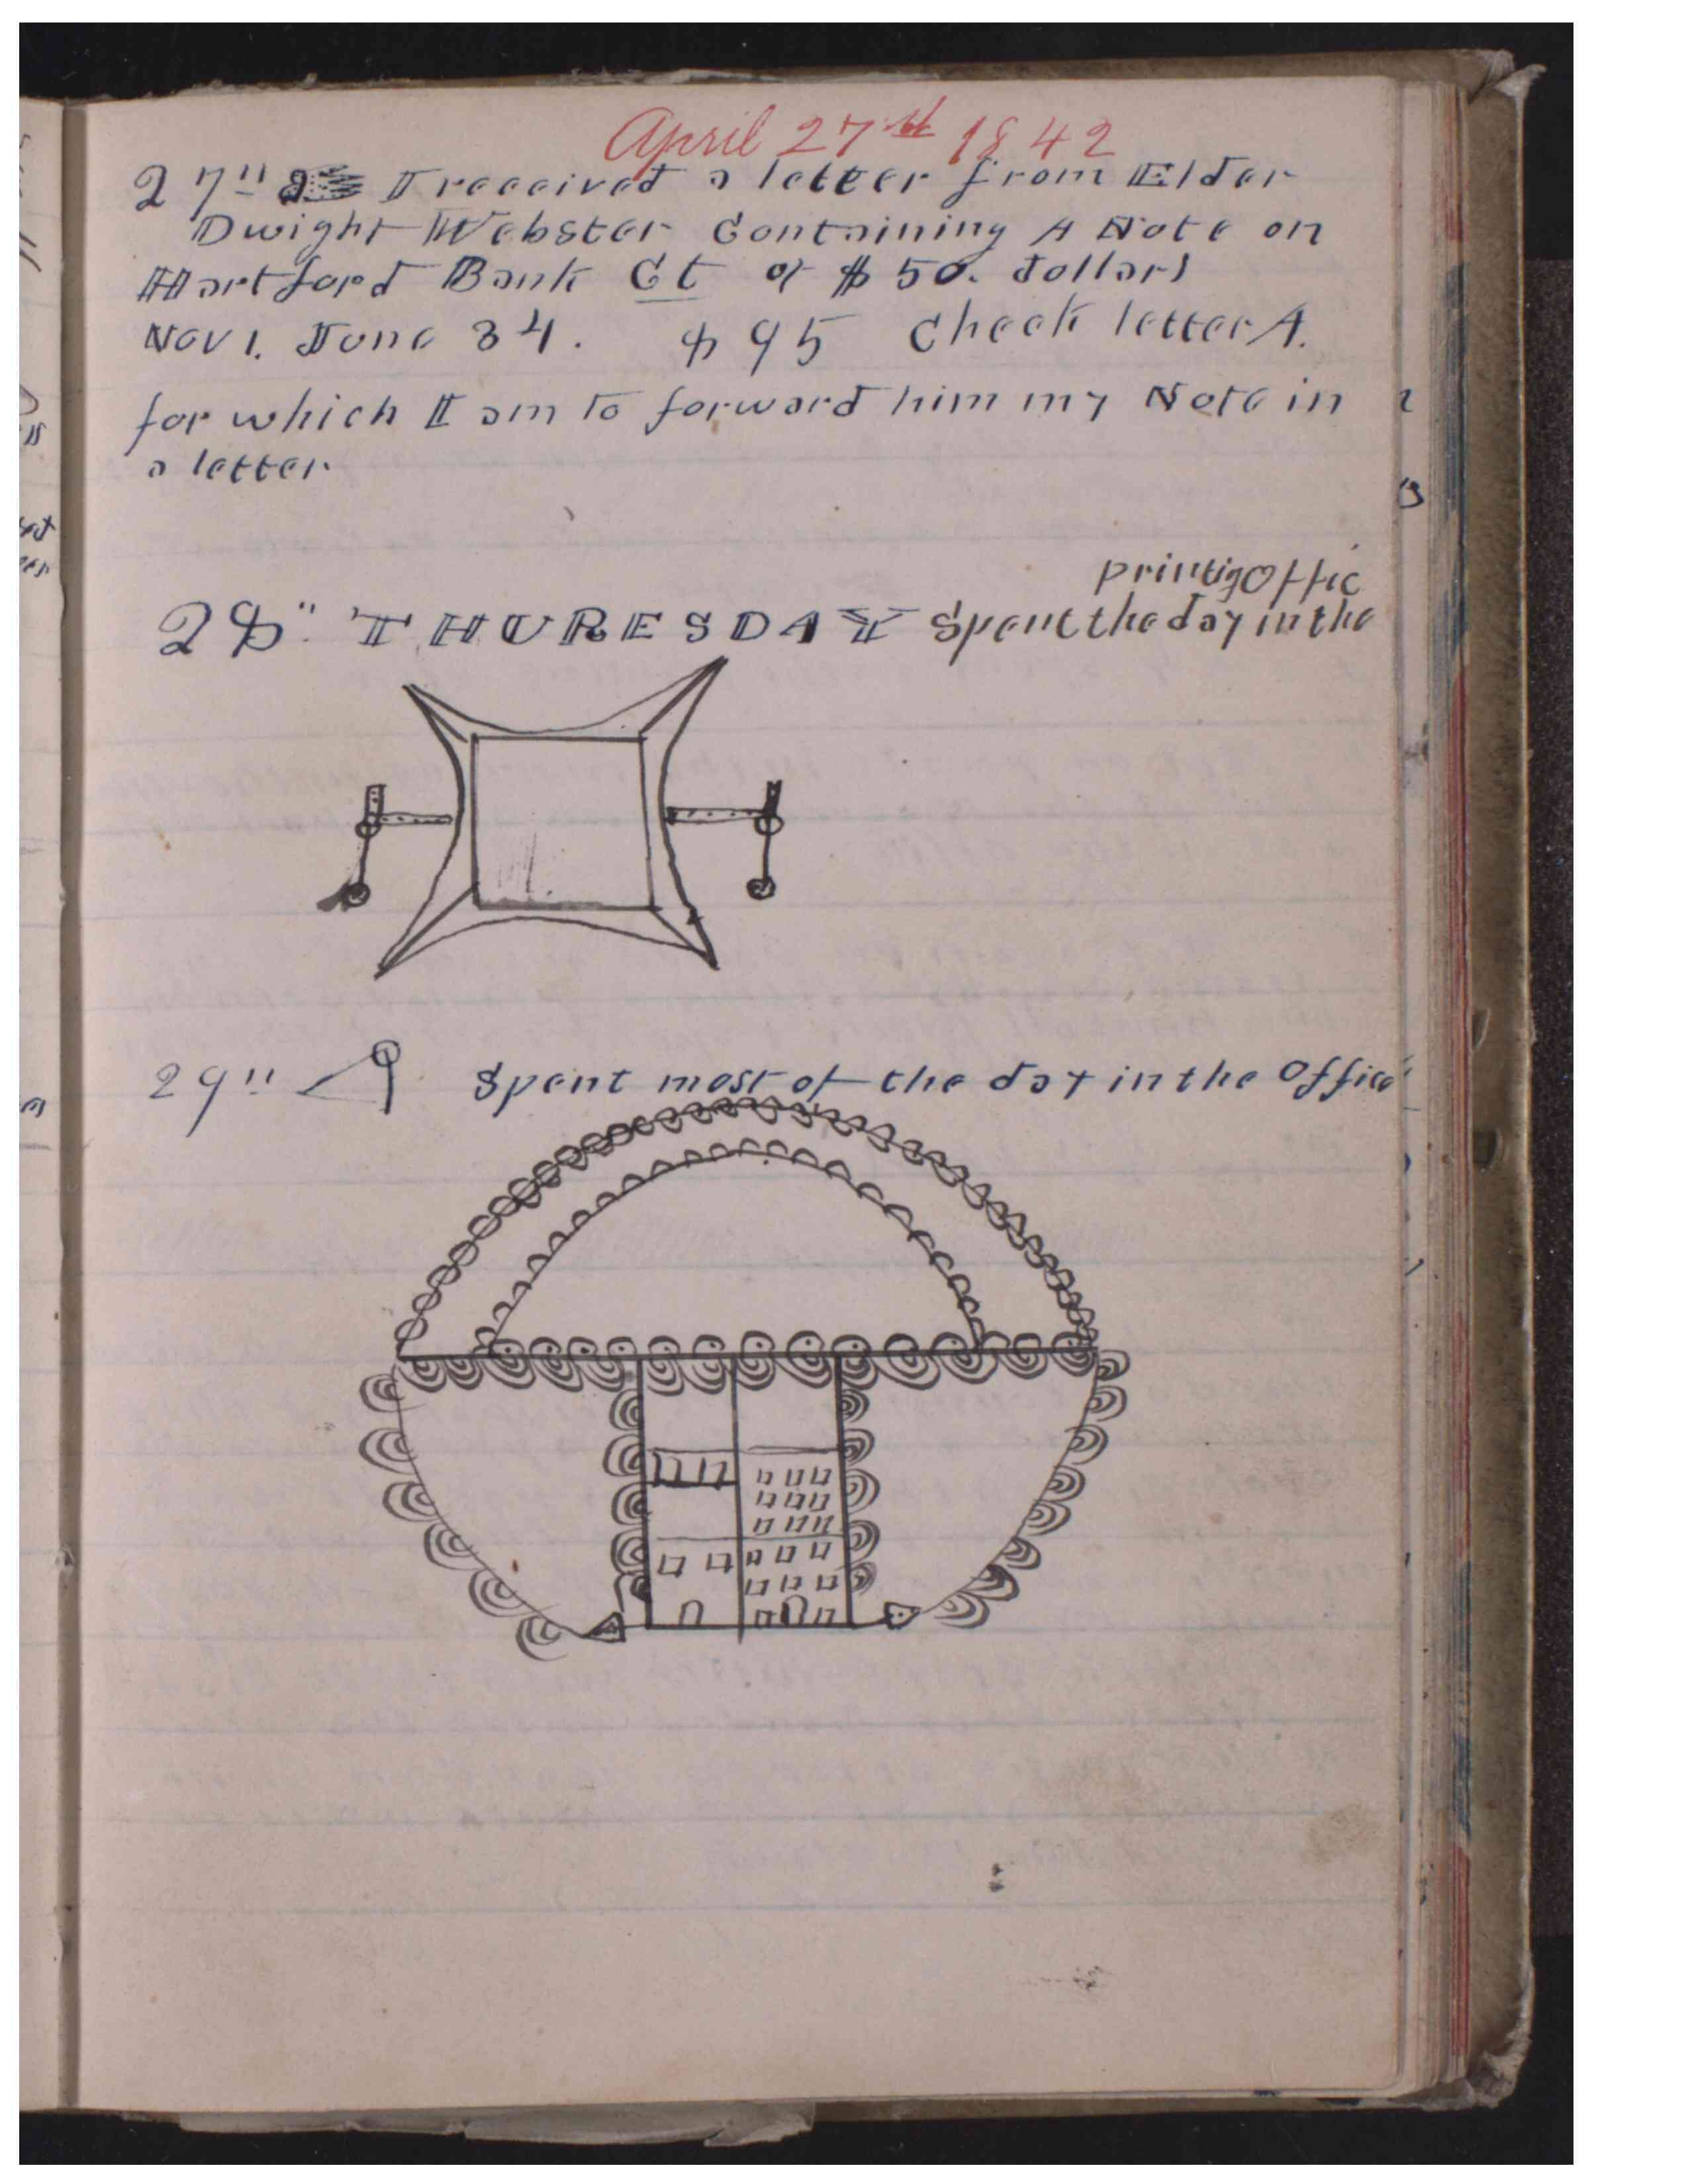 April 27th 1842
27" I received a letter from Elder
Dwight Webster Containing A Note on
Hartford Bank Ct of $50. dollars
Nov 1. June 34. $95 Check letter A.
for which I am to forward him my Note in
a letter
printig Offic
28" THURESDAY Spent the day in the
29" Spent most of the day in the Office